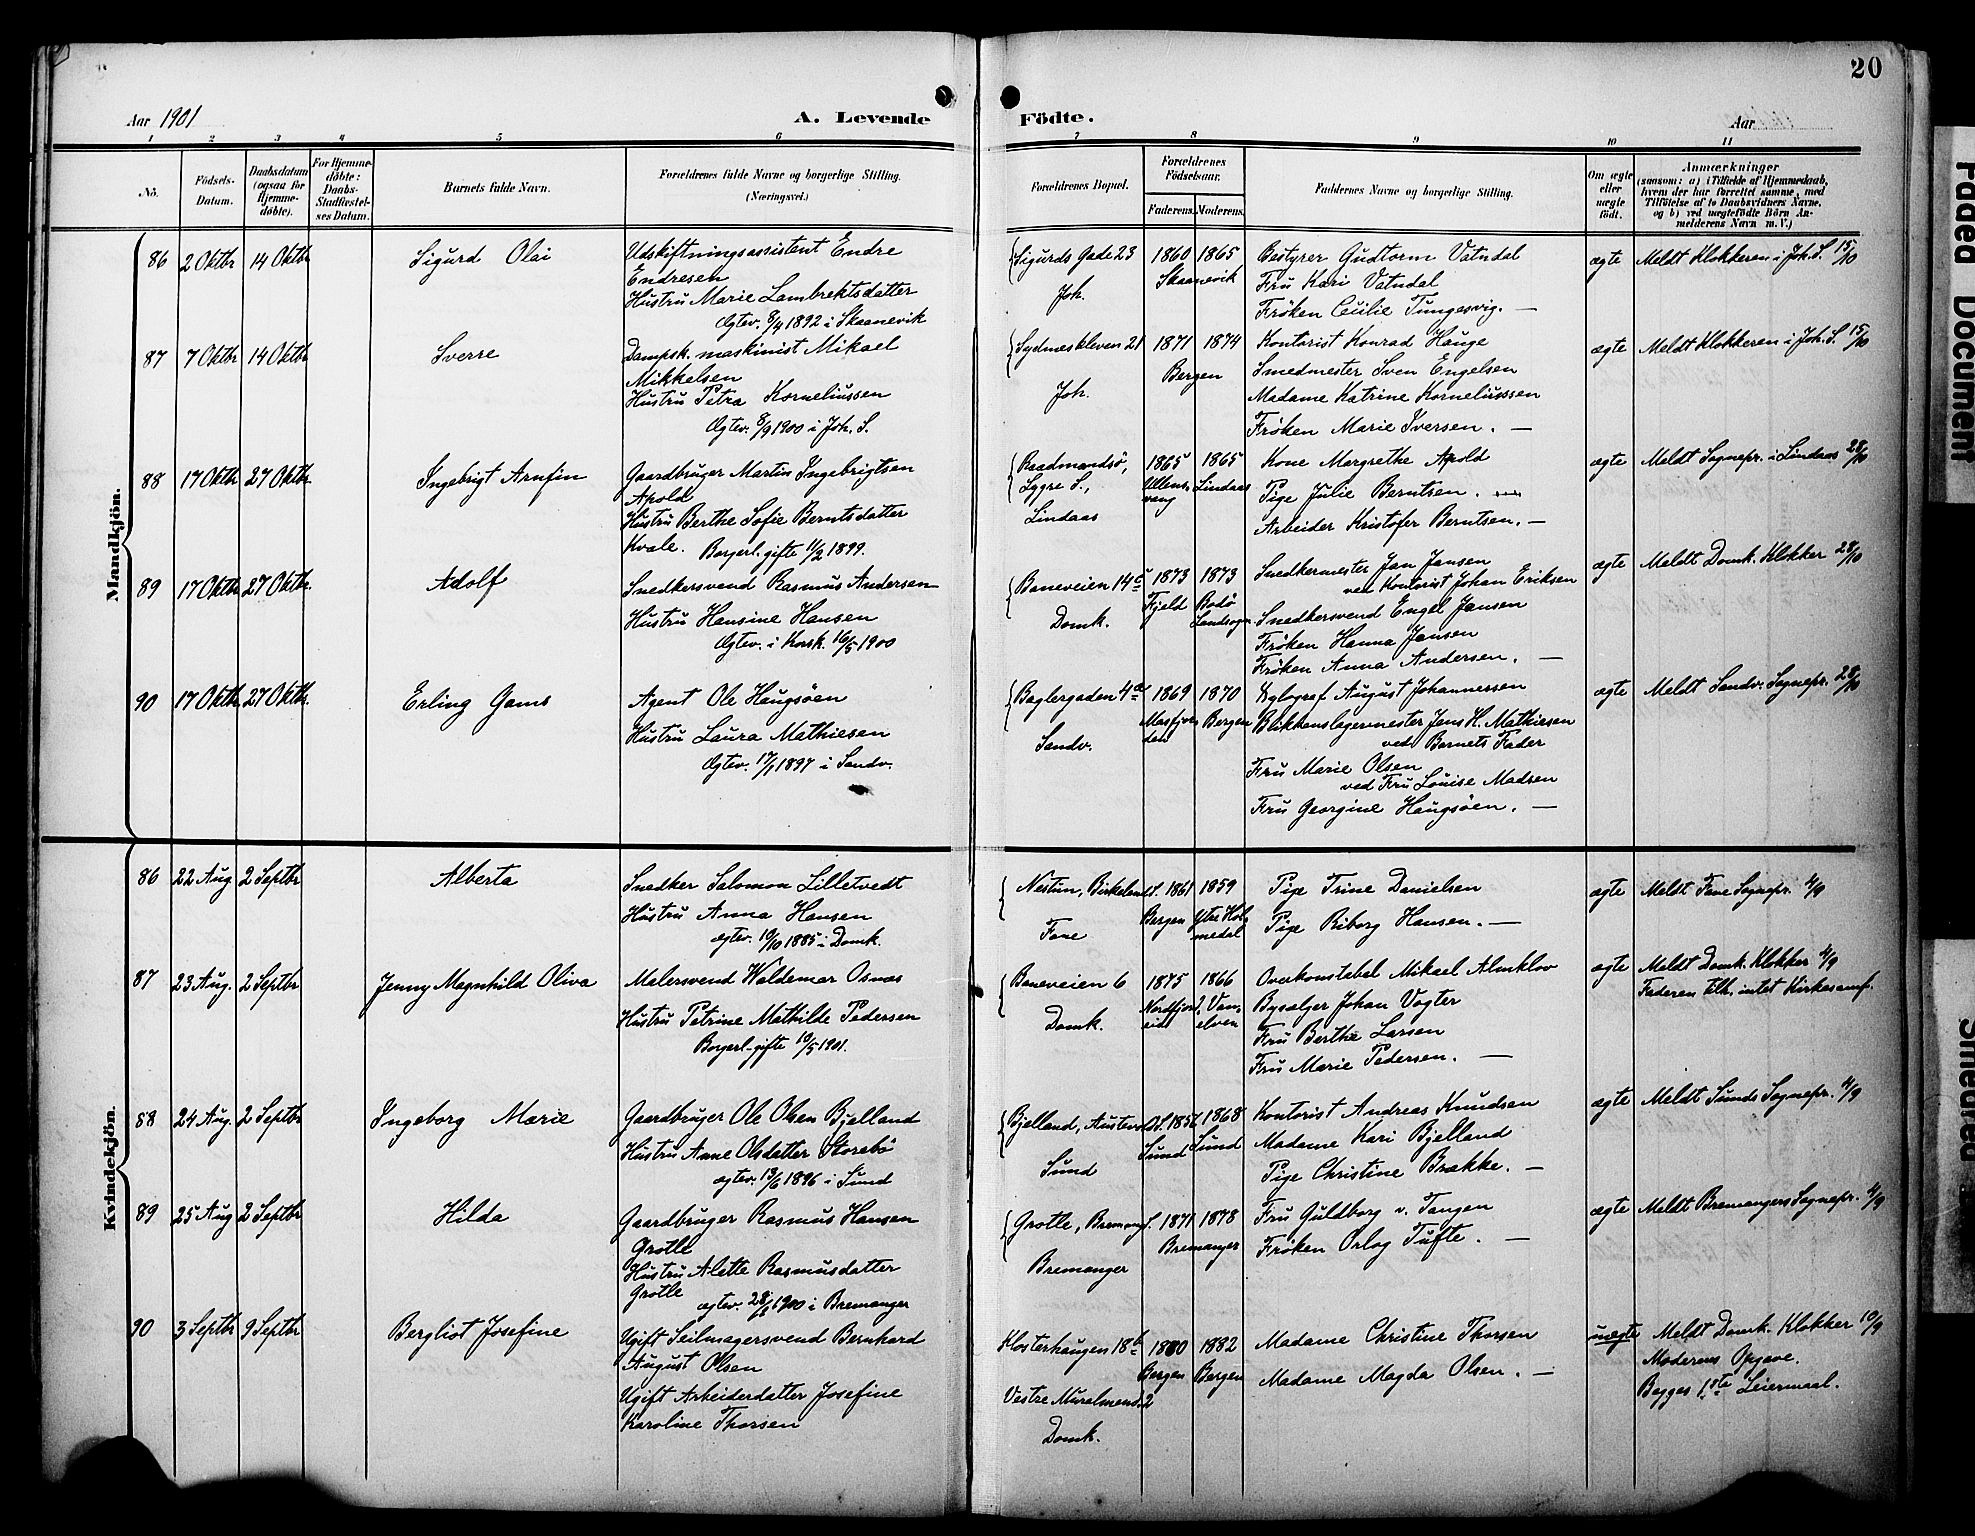 20
Aar 1901
A. Levende Födte.
Aar
1 2 3 4 5 6 7 8 9 10 11
No.
Födsels-Datum.
Daabsdatum (ogsaa for Hjemme-döbte).
For Hjemme-döbte: Daabs-Stadfæstel-ses Datum.
Barnets fulde Navn.
Forældrenes fulde Navne og borgerlige Stilling. (Næringsvei.)
Forældrenes Bopæl.
Forældrenes Födselsaar.
Faderens. Moderens.
Faddernes Navne og borgerlige Stilling.
Om ægte eller uægte födt.
Anmærkninger
(saasom: a) i Tilfælde af Hjemmedaab,
hvem der har forrettet samme, med
Tilföielse af to Daabsvidners Navne,
og b) ved uægtefödte Börn An-
melderens Navn m. V.)
Mandkjön.
86 2 Oktbr 14 Oktbr Sigurd Olai
Udskiftningsassistent Endre
Endresen
Hustru Marie Lambrektsdatter
Ægtev. 8/4 1892 i Skaanevik
Sigurds Gade 23
Joh.
1860 1865
Skaanevik
Bestyrer Gudtorm Vatndal
Fru Kari Vatndal
Frøken Cecilie Tungesvig. —
ægte Meldt Klokkeren i Joh. S. 15/10
87 7 Oktbr 14 Oktbr Sverre
Dampsk. maskinist Mikael
Mikkelsen
Hustru Petra Korneliussen
Ægtev. 8/9 1900 i Joh. S.
Sydneskleven 21
Joh.
1871 1874
Bergen
Kontorist Konrad Hauge
Smedmester Sven Engelsen
Madame Katrine Korneliussen
Frøken Marie Iversen. —
ægte Meldt Klokkeren i Joh. S. 15/10
88 17 Oktbr 27 Oktbr Ingebrigt Arnfin
Gaardbruger Martin Ingebrigtsen
Apold
Hustru Berthe Sofie Berntsdatter
Kvale. Borgerl. gifte 11/2 1899.
Raadmandsö,
Lygre S.,
Lindaas
1865 1865
Ullensvang Lindaas
Kone Margrethe Apold
Pige Julie Berntsen.
Arbeider Kristofer Berntsen. —
ægte Meldt Sognepr. i Lindaas 28/10
89 17 Oktbr 27 Oktbr. Adolf
Snedkersvend Rasmus Andersen
Hustru Hansine Hansen
Ægtev. i Korsk. 16/5 1900
Baneveien 14 c
Domk.
1873 1873
Fjeld Bodö Landsogn
Snedkermester Jan Jansen
ved Kontorist Johan Eriksen
Snedkersvend Engel Jansen
Frøken Hanna Jansen
Frøken Anna Andersen. —
ægte Meldt Domk. Klokker 28/10
90 17 Oktbr 27 Oktbr. Erling Gams
Agent Ole Haugsöen
Hustru Laura Mathiesen
Ægtev. 17/1 1897 i Sandv.
Baglergaden 4 a
Sandv.
1869 1870
Masfjorden Bergen
Xylograf August Johannessen
Blikkenslagermester Jens H. Mathiesen
ved Barnets Fader
Fru Marie Olsen
ved Fru Louise Madsen
Fru Georgine Haugsöen. —
ægte Meldt Sandv. Sognepr. 28/10
Kvindekjön.
86 22 Aug. 2 Septbr Alberta
Snedker Salomon Lilletvedt
Hustru Anna Hansen
ægtev. 10/10 1885 i Domk.
Nestun, Birkeland.
Fane
1861 1859
Bergen Ytre Holmedal
Pige Trine Danielsen
Pige Riborg Hansen. —
ægte Meldt Fane Sognepr. 4/9
87 23 Aug. 2 Septbr Jenny Magnhild Oliva
Malersvend Waldemar Osnæs
Hustru Petrine Mathilde Pedersen
Borgerl. gifte 10/5 1901.
Baneveien 6
Domk.
1875 1866
Nordfjordeid, Vanelven
Overkonstabel Mikael Almklov
Bysælger Johan Vogter
Fru Berthe Larsen
Fru Marie Pedersen. —
ægte Meldt Domk. Klokker 4/9
Faderen tilh. intet Kirkesamf.
88 24 Aug. 2 Septbr Ingeborg Marie
Gaardbruger Ole Olsen Bjelland
Hustru Anne Olsdatter Storebö
ægtev. 13/6 1896 i Sund
Bjelland,
Sund
1856 1868
Sund Sund
Kontorist Andreas Knudsen
Madame Kari Bjelland
Pige Christine Brække. —
ægte Meldt Sunds Sognepr. 4/9
89 25 Aug 2 Septbr Hilda
Gaardbruger Rasmus Hansen
Grotle
Hustru Alette Rasmusdatter
Grotle
ægtev. 1900 i Bremanger
Grotle,
Bremanger
1871 1878
Bremanger
Fru Guldborg v. Tangen
Frøken Orlog Tufte. —
ægte Meldt Bremangers Sognepr. 4/9
90 3 Septbr 9 Septbr Bergliot Josefine
Ugift Seilmagersvend Bernhard
August Olsen
Ugift Arbeiderdatter Josefine
Karoline Thorsen
Klosterhaugen 18 b
Vestre Muralmend. 2
Domk.
1880 1882
Bergen Bergen
Madame Christine Thorsen
Madame Magda Olsen. —
uægte Meldt Domk. Klokker 10/9
Moderens Opgave.
Begges 1ste Leiermaal.
Faded Document
Smeared